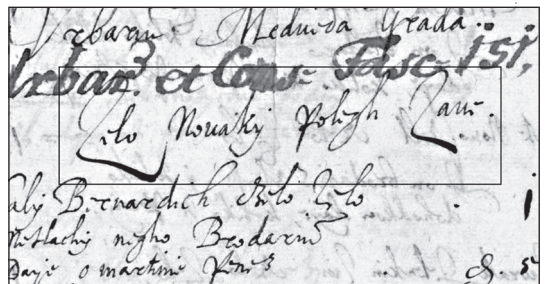 Urbarium Medveda Grada.
Urbar. et Cons. Fasc. 151.
Selo Novaky Polegh Zave.
aly Bernardich czelo Zelo
negho Brodarie
Daye o martinie